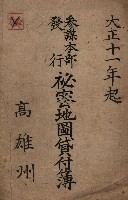 大正十一年起
參謀本部
發行
祕密地圖貸付簿
高雄州